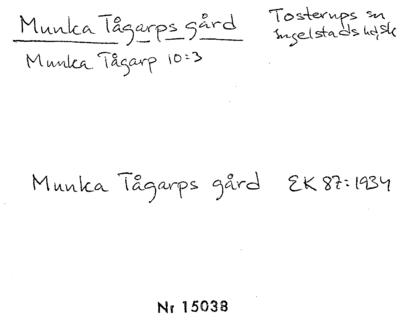 Munka Tågarps gård
Tosterups sn
Ingelstads hd, Sk
Munka Tågarp 10:3
Munka Tågarps gård EK 87:1934
Nr 15038